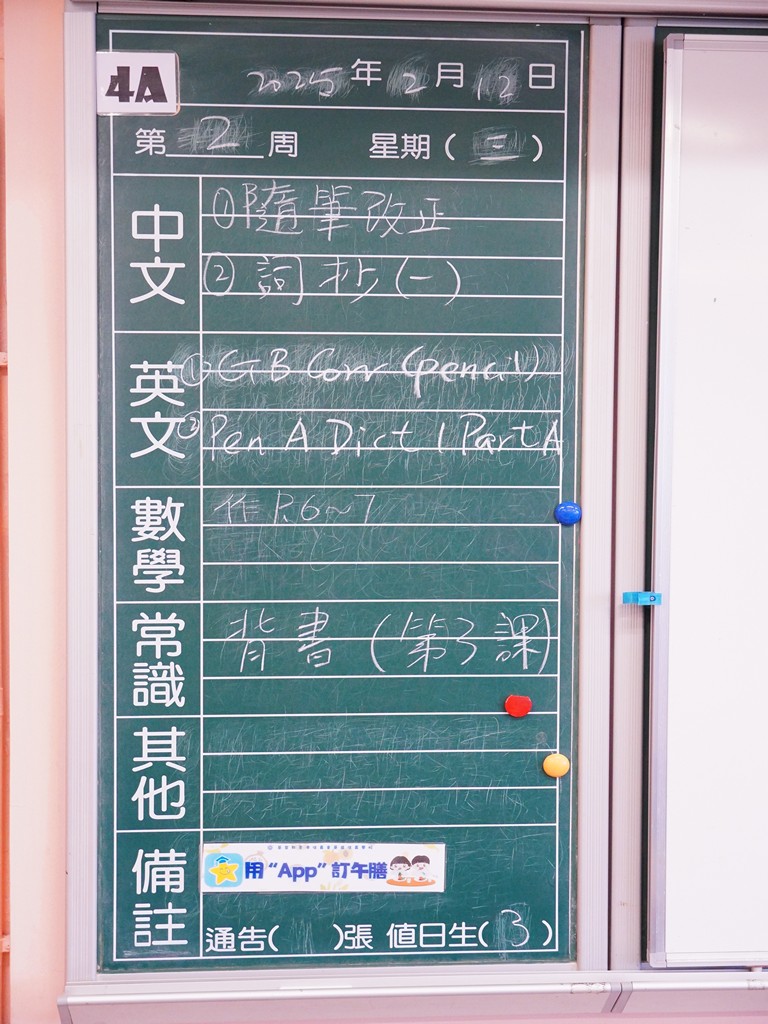 4A
2025年2月12日
第2周 星期(三)
中文
①隨筆改正
②詞抄(一)
英文
①GB Corr (pencil)
②Pen A Dict 1 Part A
數學
作 P.6~7
常識
背書(第3課)
其他
備註
用“App”訂午膳
通告( )張 值日生(3)